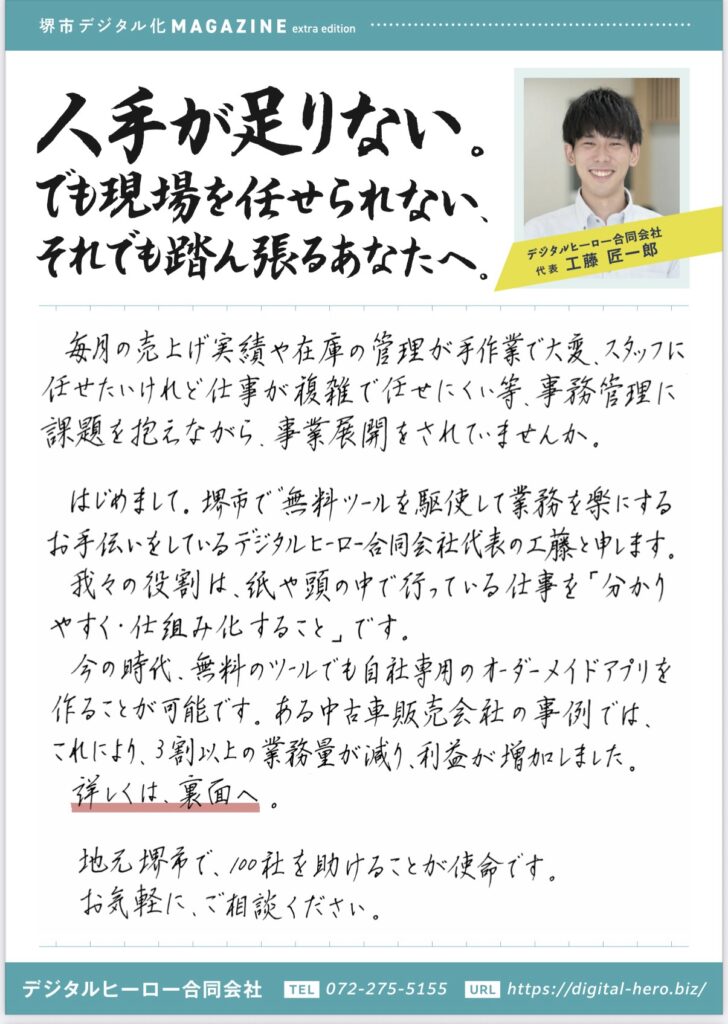 堺市デジタル化 MAGAZINE extra edition
人手が足りない。
でも現場を任せられない、
それでも踏ん張るあなたへ。
デジタルヒーロー合同会社
代表 工藤 匠一郎
毎月の売上げ実績や在庫の管理が手作業で大変、スタッフに
任せたいけれど仕事が複雑で任せにくい等、事務管理に
課題を抱えながら、事業展開をされていませんか。
はじめまして。堺市で無料ツールを駆使して業務を楽にする
お手伝いをしているデジタルヒーロー合同会社代表の工藤と申します。
我々の役割は、紙や頭の中で行っている仕事を「分かり
やすく・仕組み化すること」です。
今の時代、無料のツールでも自社専用のオーダーメイドアプリを
作ることが可能です。ある中古車販売会社の事例では、
これにより、3割以上の業務量が減り、利益が増加しました。
詳しくは、裏面へ。
地元堺市で、100社を助けることが使命です。
お気軽に、ご相談ください。
デジタルヒーロー合同会社 TEL 072-275-5155 URL https://digital-hero.biz/